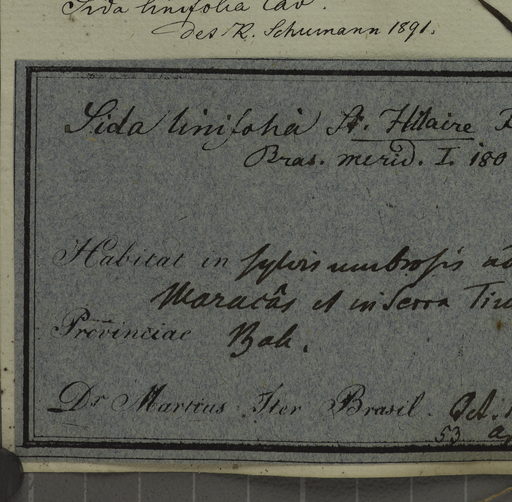 Sida linifolia Cav.
det K. Schumann 1891.
Sida linifolia St. Hilaire
Bras. merid. I. 180
Habitat in sylvis umbrosis
Maracâs et in Serra
Provinciae Bah.
Dr Martius Iter Brasil. Oct.
53